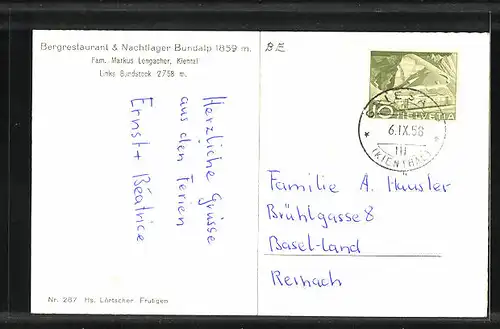 Bergrestaurant & Nachtlager Bundalp 1859 m.
Fam. Markus Longacher, Kiental
Links Bundstock 2758 m.
Herzliche Grüsse
aus den Ferien
Ernst + Béatrice
Nr. 287 Hs. Lörtscher Frutigen
BE
5
HELVETIA
6.IX.58
III
(KIENTHAL)
Familie A. Hausler
Brühlgasse 8
Basel-land
Reinach